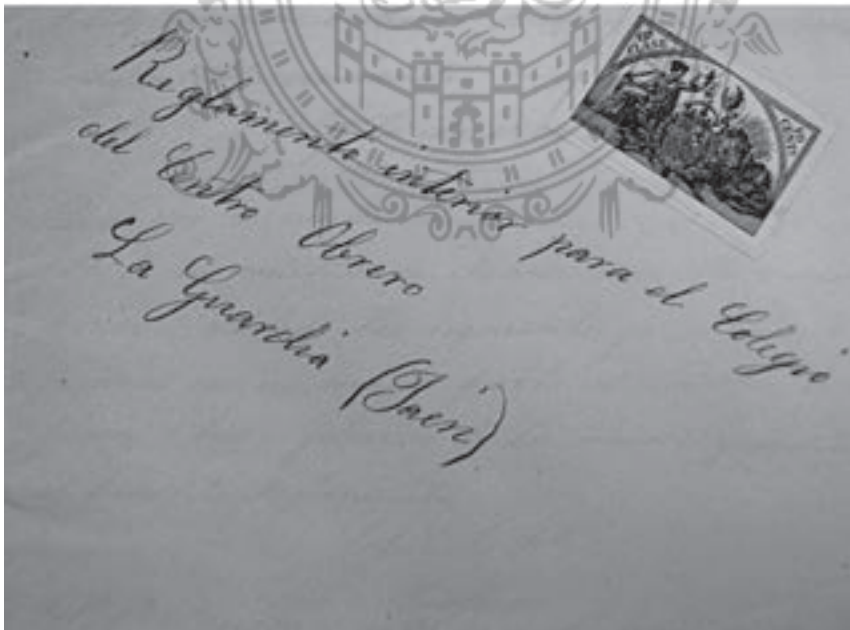 Reglamento interior para el Colegio
del Centro Obrero
La Guardia (Jaen)